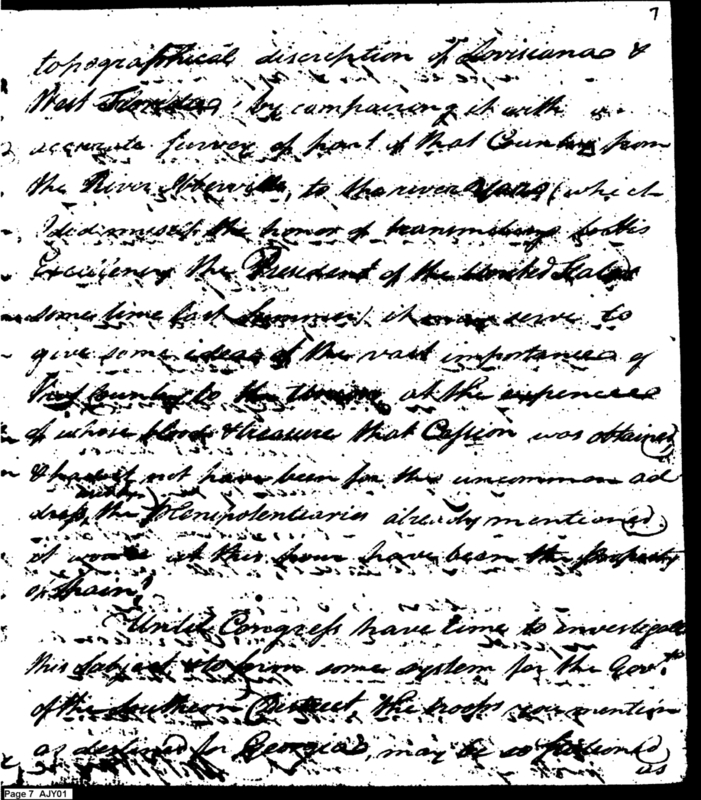 7
topographical discreption of Louisiana &
West Florida, by compairing it with a
accurate survey of part of that Country from
the River Iberville, to the river Yazoo (which
I did myself the honor of transmitting to His
Excellency the President of the United States
some time last Summer) it may serve to
give some idea of the vast importance of
that Country to the Union, at the expence
of whose blood & treasure that Cession was obtained,
& had it not have been for the uncommon ad
dress, the Plenipotentiaries already mentioned,
it would at this hour have been the property
of Spain.
Until Congress have time to investigate
this Subject & to form some system for the Govt.
of the Southern District, the troops you mention
as destined for Georgia, may be so stationed
as
Page 7 AJY01